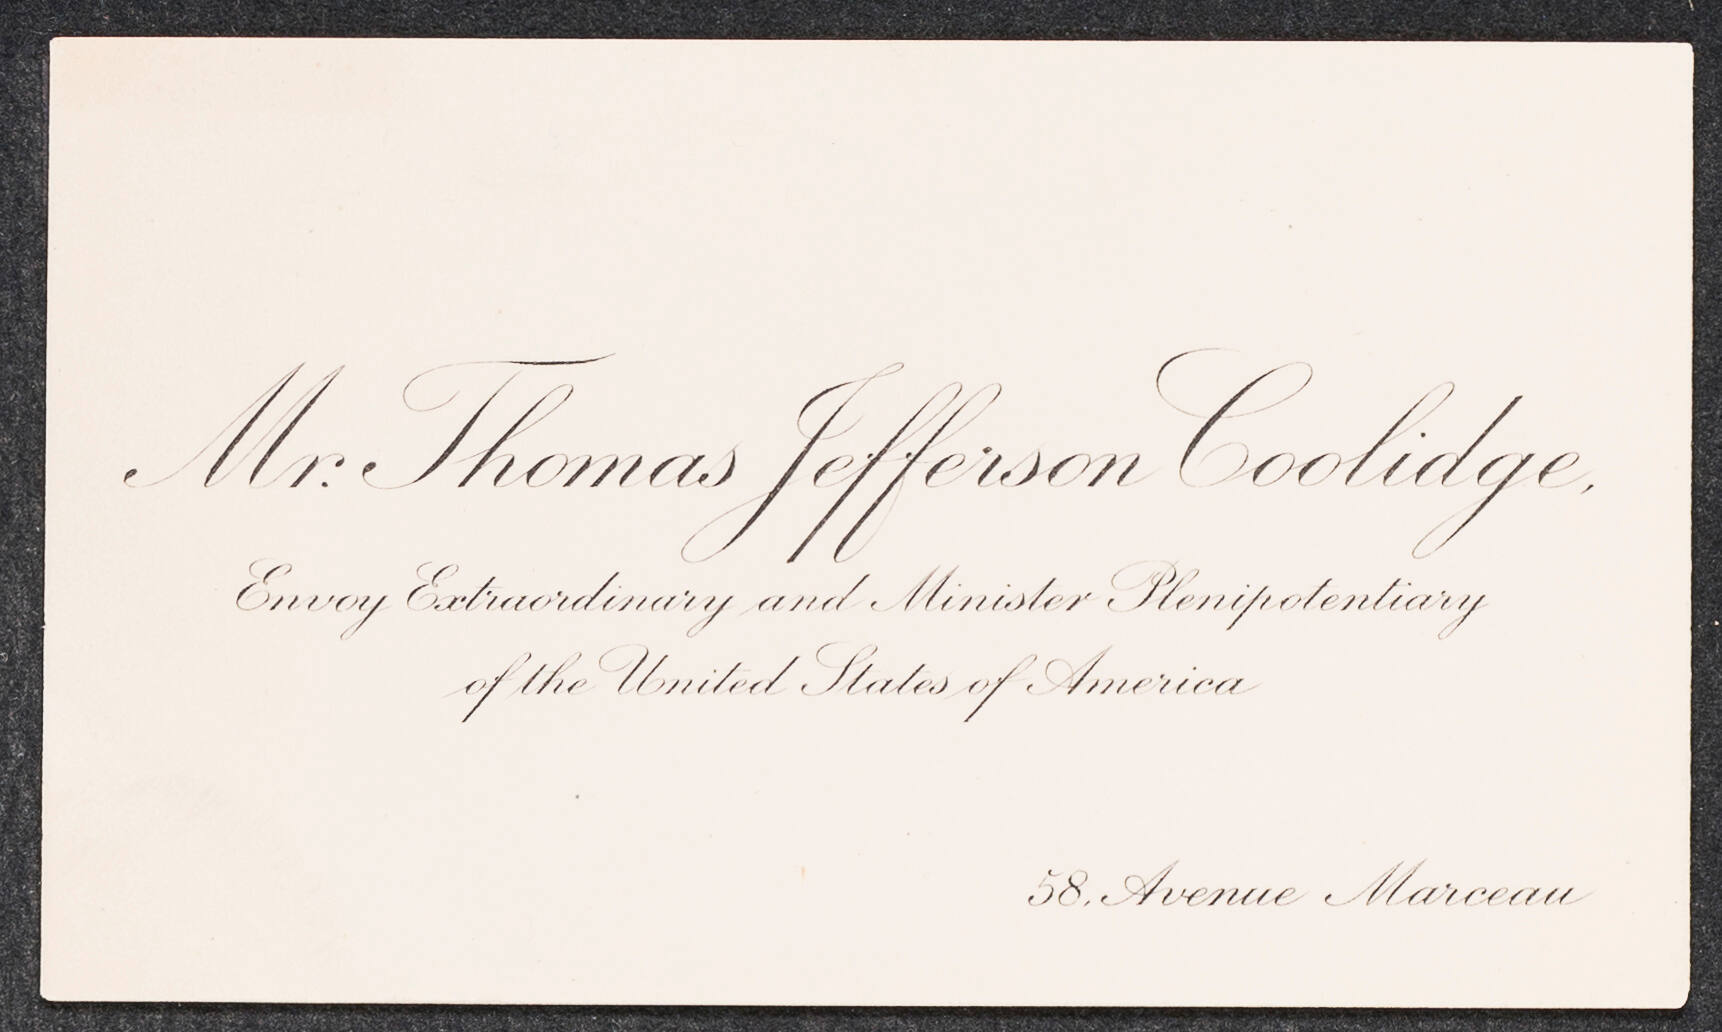 Mr. Thomas Jefferson Coolidge,
Envoy Extraordinary and Minister Plenipotentiary
of the United States of America
58, Avenue Marceau